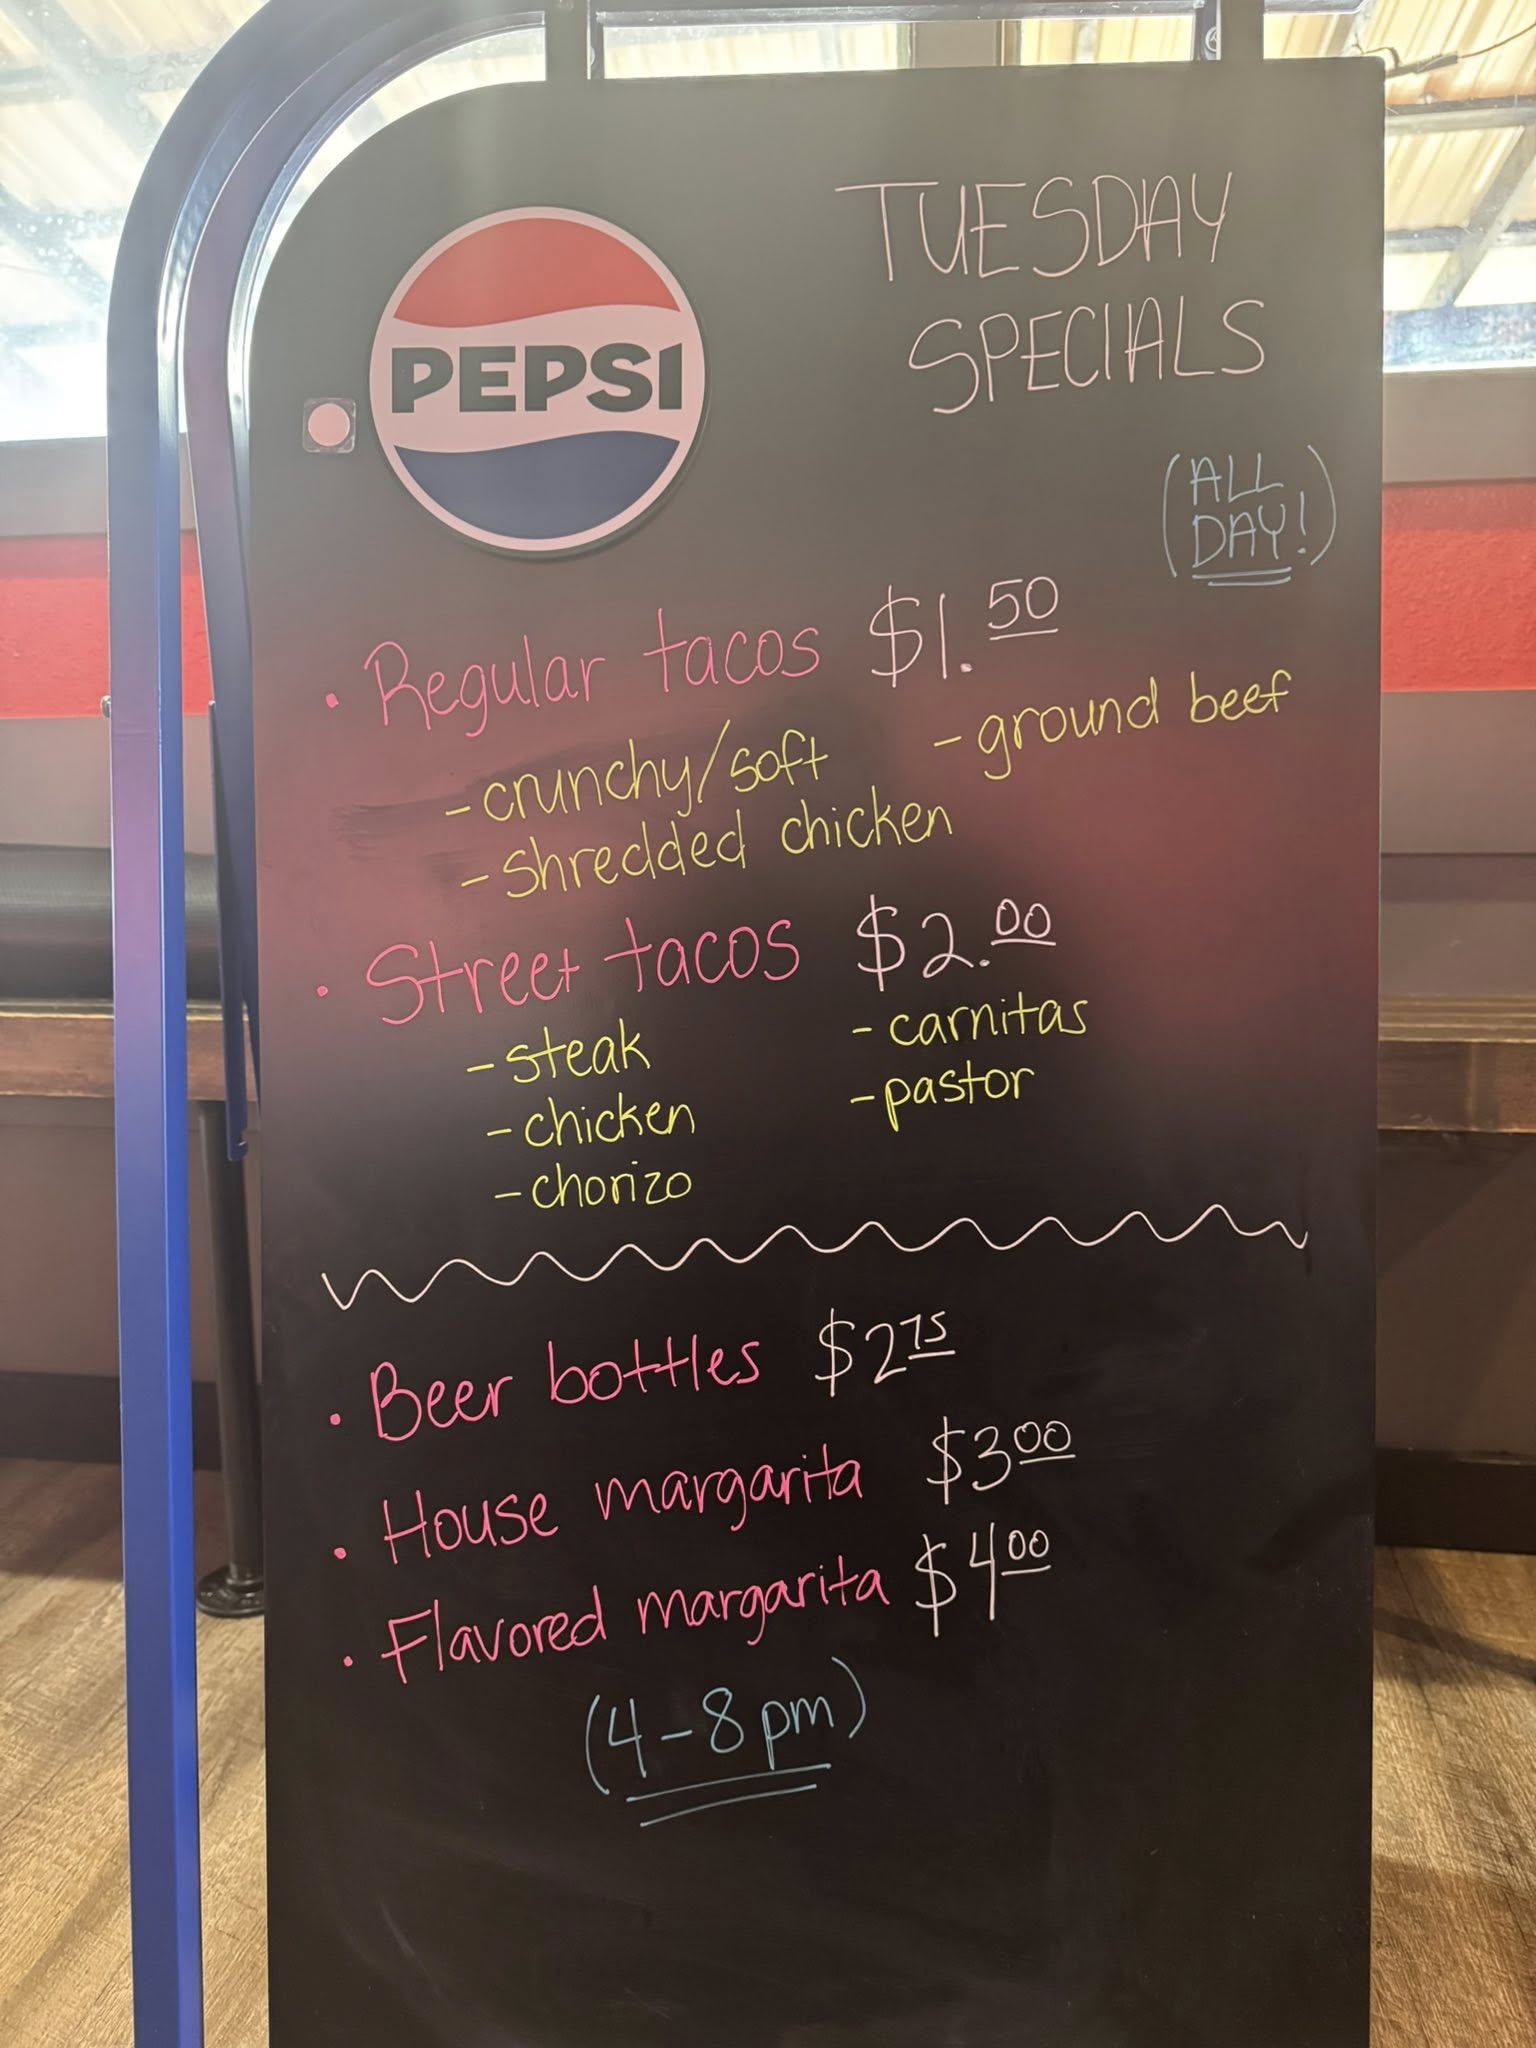 PEPSI
TUESDAY
SPECIALS
(ALL
DAY!)
• Regular tacos $1.50
- crunchy/soft - ground beef
- shredded chicken
• Street tacos $2.00
- steak - carnitas
- chicken - pastor
- chorizo
• Beer bottles $2.75
• House margarita $3.00
• Flavored margarita $4.00
(4-8pm)